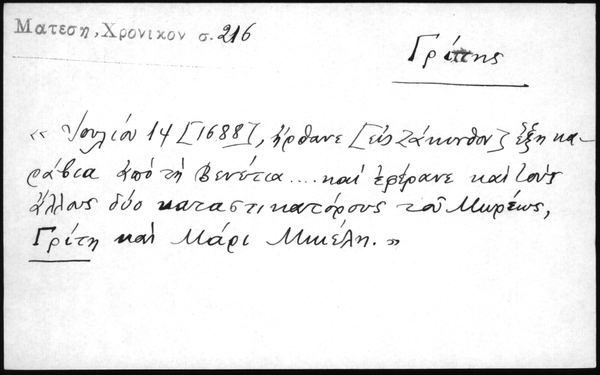 Ματεση, Χρονικον σ. 216
Γρίτης
« Ἰουλίου 14 [1688], ἤρθανε [εἰς Ζάκυνθον] ἕξη κα-
ράβια ἀπό τή Βενέτια.... καί ἐφέρανε καί τούς
ἄλλους δύο καταστικατόρους τοῦ Μωρέως,
Γρίτη καί Μάρι Μικέλη. »